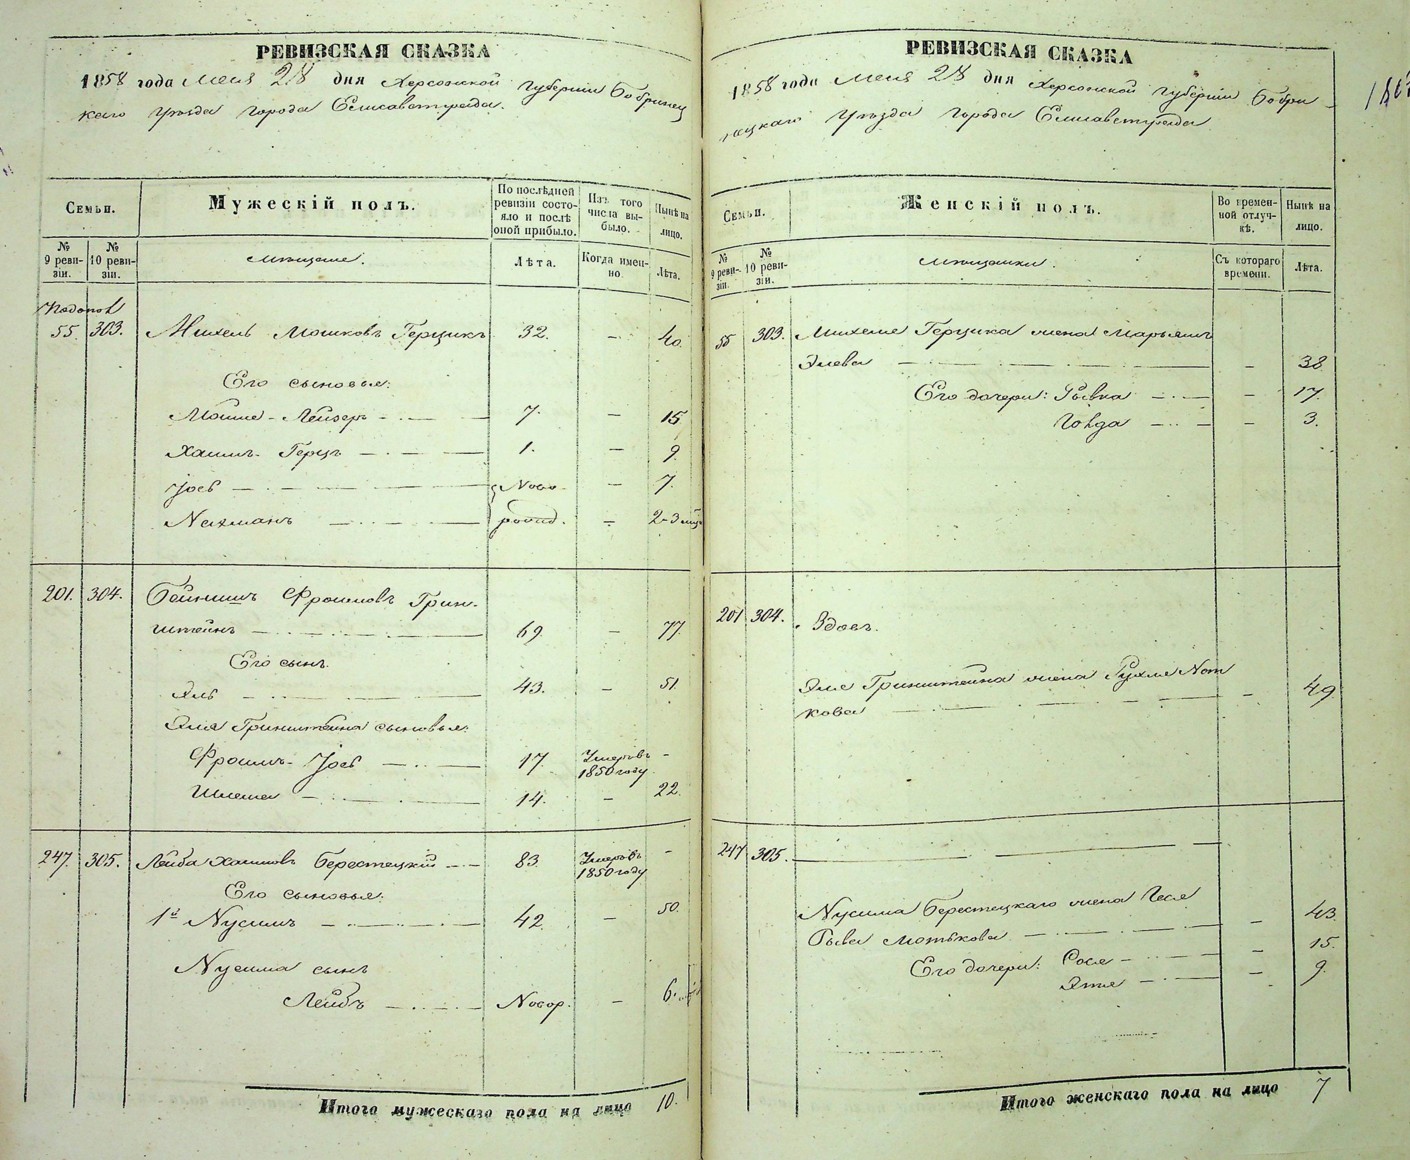 РЕВИЗСКАЯ СКАЗКА
1858 года Мая 28 дня Херсонской Губернiи Бобринец
каго Уѣзда города Елисаветграда.
Семьи.
Мужескiй полъ.
По послѣдней ревизiи состояло и послѣ оной прибыло.
Изъ того числа выбыло.
Нынѣ на лицо.
№ 9 ревизiи.
№ 10 ревизiи.
Мѣщане.
Лѣта.
Когда именно.
Лѣта.
55. 303. Михель Мошковъ Герцикъ 32. – 40.
Его сыновья:
Мойше-Лейзеръ 7. – 15
Хаимъ-Герцъ 1. – 9.
Iось Ново – 7.
Нахманъ рожд. – 2
201. 304. Бейнишъ Фроимовъ Грин-
штейнъ 69. – 77.
Его сынъ.
Эль 43. – 51.
Эля Гринштейна сыновья:
Фроимъ-Iось 17. Умеръ въ 1850 году –
Шлема 14. – 22.
247. 305. Лейба Хаимовъ Берестецкiй 83. Умеръ въ 1850 году –
Его сыновья:
1й Нусимъ 42. – 50.
Нусима сынъ
Лейбъ Новор. – 6.
Итого мужескаго пола на лицо 10.
РЕВИЗСКАЯ СКАЗКА
1858 года Мая 28 дня Херсонской Губернiи Бобри-
нецкаго Уѣзда города Елисаветграда
Семьи.
Женскiй полъ.
Во временной отлучкѣ.
Нынѣ на лицо.
№ 9 ревизiи.
№ 10 ревизiи.
Мѣщанки.
Съ котораго времени.
Лѣта.
55 303. Михеля Герцика жена Марьямъ
Элева – 38
Его дочери: Рывка – 17.
Голда – 3.
201 304. Вдовъ.
Эля Гринштейна жена Рухля Нот
кова – 49.
247 305.
Нусима Берестецкаго жена Чеся
Рыва Мотькова – 43.
Его дочери: Рося – 15.
Этля – 9.
Итого женскаго пола на лицо 7